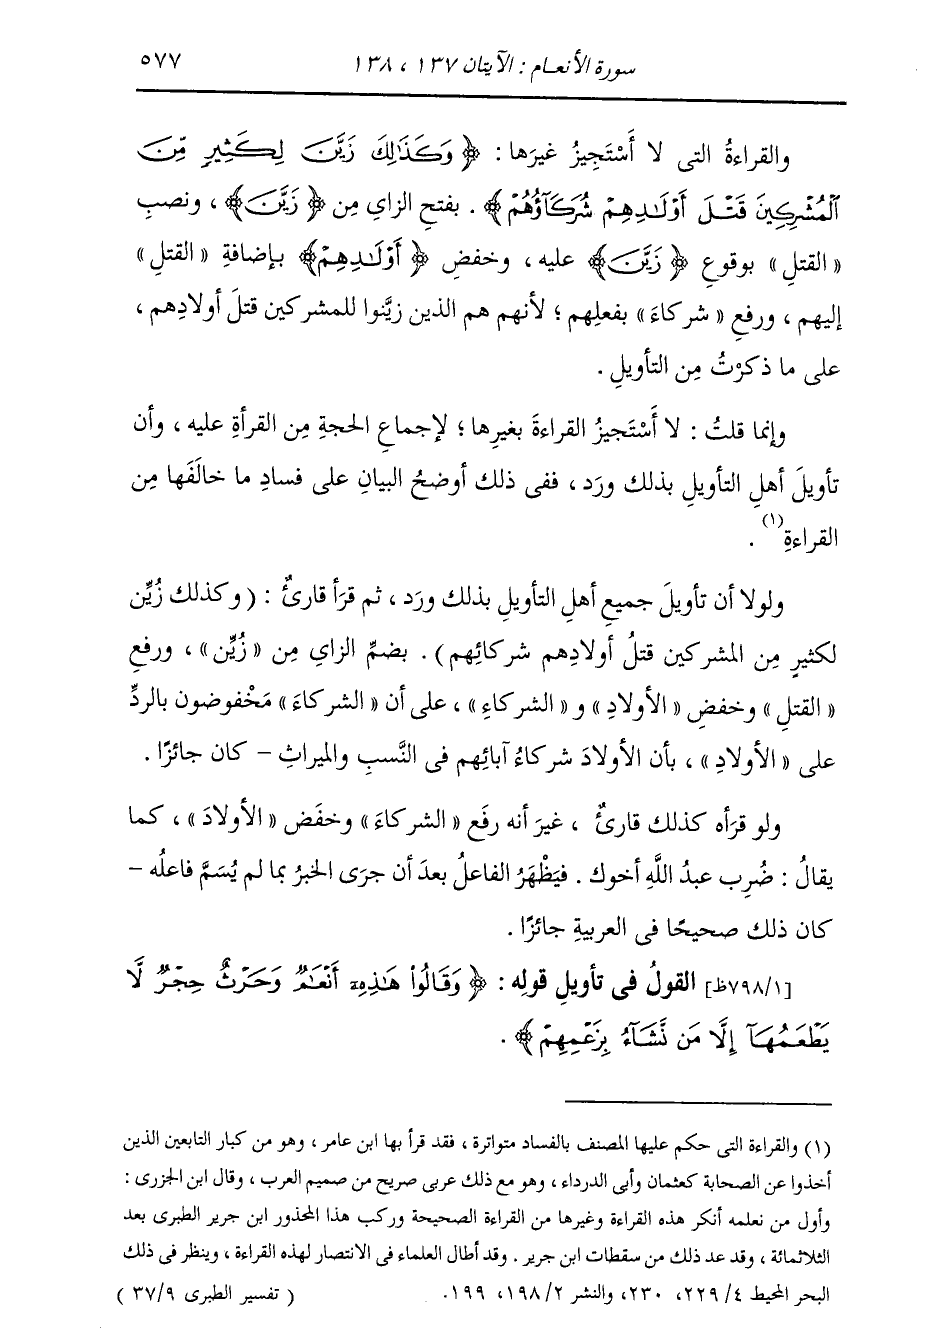 سورة الأنعام : الآيتان ١٣٧ ، ١٣٨ ٥٧٧
والقراءةُ التى لا أَسْتَجِيزُ غيرَها : ﴿ وَكَذَٰلِكَ زَيَّنَ لِكَثِيرٍ مِّنَ
ٱلْمُشْرِكِينَ قَتْلَ أَوْلَٰدِهِمْ شُرَكَآؤُهُمْ ﴾ . بفتحِ الزاي مِن ﴿ زَيَّنَ ﴾ ، ونصبِ
« القتلِ » بوقوعِ ﴿ زَيَّنَ ﴾ عليه ، وخفضِ ﴿ أَوْلَٰدِهِمْ ﴾ بإضافةِ « القتلِ »
إليهم ، ورفعِ « شركاءَ » بفعلِهم ؛ لأنهم هم الذين زيَّنوا للمشركين قتلَ أولادِهم ،
على ما ذكرْتُ مِن التأويلِ .
وإنما قلتُ : لا أَسْتَجيزُ القراءةَ بغيرِها ؛ لإجماعِ الحجةِ مِن القرأةِ عليه ، وأن
تأويلَ أهلِ التأويلِ بذلك ورَد ، ففى ذلك أوضحُ البيانِ على فسادِ ما خالَفَها مِن
القراءةِ(١) .
ولولا أن تأويلَ جميعِ أهلِ التأويلِ بذلك ورَد ، ثم قرَأ قارئٌ : ( وكذلك زُيِّن
لكثيرٍ مِن المشركين قتلُ أولادِهم شركائِهم ) . بضمِّ الزاي مِن « زُيِّن » ، ورفعِ
« القتلِ » وخفضِ « الأولادِ » و « الشركاءِ » ، على أن « الشركاءَ » مَخْفوضون بالردِّ
على « الأولادِ » ، بأن الأولادَ شركاءُ آبائِهم فى النَّسبِ والميراثِ – كان جائزًا .
ولو قرَأه كذلك قارئٌ ، غيرَ أنه رفَع « الشركاءَ » وخفَض « الأولادَ » ، كما
يقالُ : ضُرِب عبدُ اللَّهِ أخوك . فيَظْهَرُ الفاعلُ بعدَ أن جرَى الخبرُ بما لم يُسَمَّ فاعلُه –
كان ذلك صحيحًا فى العربيةِ جائزًا .
[٧٩٨/١ظ] القولُ فى تأويلِ قولِه : ﴿ وَقَالُواْ هَٰذِهِۦٓ أَنْعَٰمٌ وَحَرْثٌ حِجْرٌ لَّا
يَطْعَمُهَآ إِلَّا مَن نَّشَآءُ بِزَعْمِهِمْ ﴾ .
(١) والقراءة التى حكم عليها المصنف بالفساد متواترة ، فقد قرأ بها ابن عامر ، وهو من كبار التابعين الذين
أخذوا عن الصحابة كعثمان وأبى الدرداء ، وهو مع ذلك عربى صريح من صميم العرب ، وقال ابن الجزرى :
وأول من نعلمه أنكر هذه القراءة وغيرها من القراءة الصحيحة وركب هذا المحذور ابن جرير الطبرى بعد
الثلاثمائة ، وقد عد ذلك من سقطات ابن جرير . وقد أطال العلماء فى الانتصار لهذه القراءة ، وينظر فى ذلك
البحر المحيط ٤/ ٢٢٩، ٢٣٠، والنشر ٢/ ١٩٨، ١٩٩. ( تفسير الطبرى ٣٧/٩ )